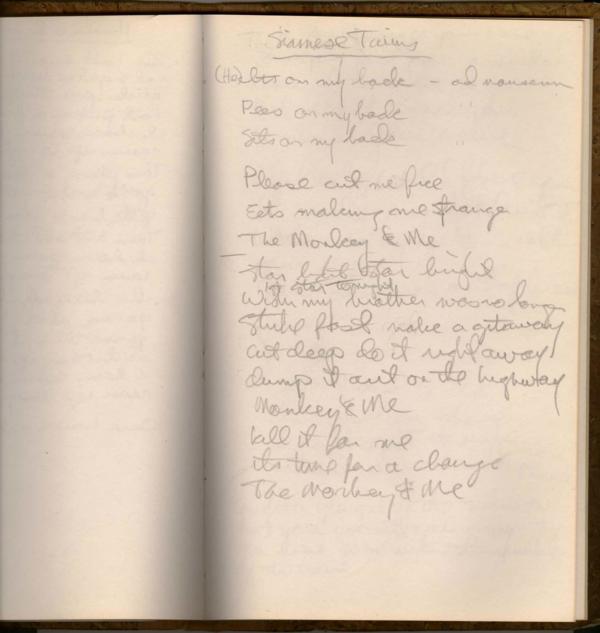 Siamese Twins
(He) on my back - ad nauseum
Pees on my back
Sits on my back
Please cut me free
Eets making me strange
The Monkey & Me
Star light star bright
1st star tonight
Wish my brother was no long
Strike fast make a getaway
cut deep do it right away
dump it out on the highway
Monkey & Me
kill it for me
its time for a change
The Monkey & Me